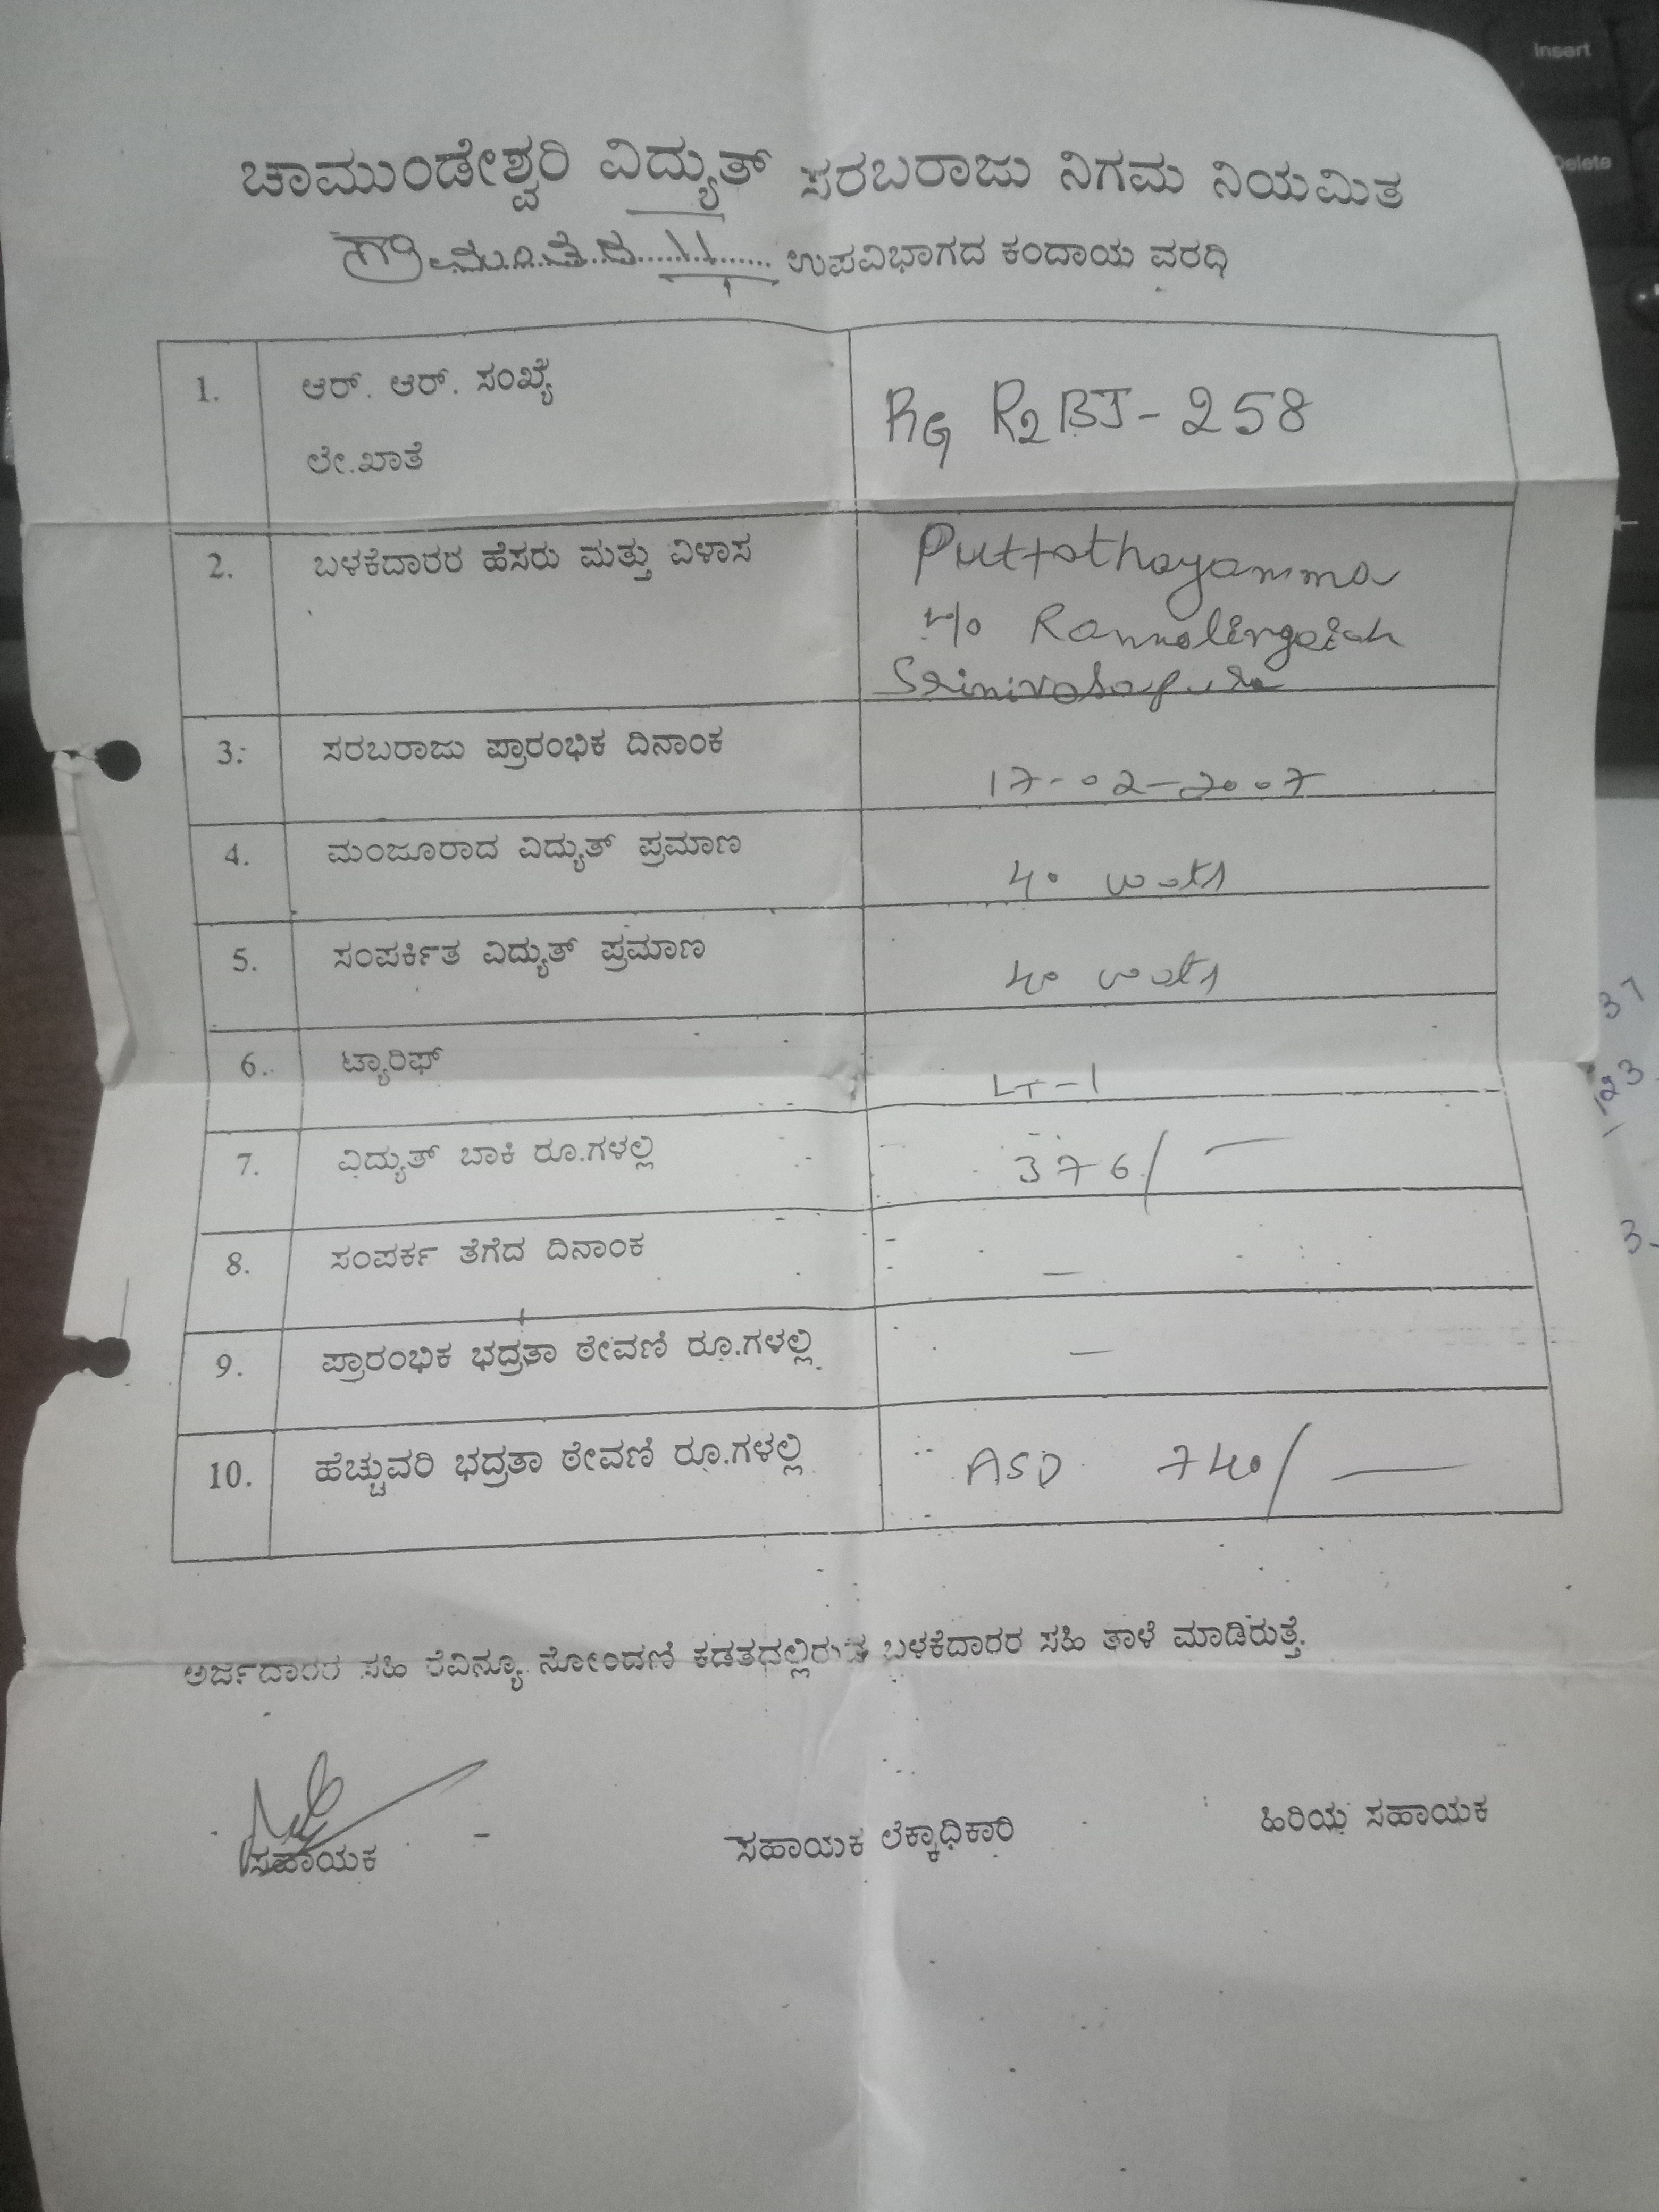 ಚಾಮುಂಡೇಶ್ವರಿ ವಿದ್ಯುತ್ ಸರಬರಾಜು ನಿಗಮ ನಿಯಮಿತ
ಉಪವಿಭಾಗದ ಕಂದಾಯ ವರದಿ
1. ಆರ್. ಆರ್. ಸಂಖ್ಯೆ
ಲೇ.ಖಾತೆ
RG R2BJ-258
2. ಬಳಕೆದಾರರ ಹೆಸರು ಮತ್ತು ವಿಳಾಸ
Puttathayamma
Ramalingaiah
Srinivasapura
3. ಸರಬರಾಜು ಪ್ರಾರಂಭಿಕ ದಿನಾಂಕ 17-02-2007
4. ಮಂಜೂರಾದ ವಿದ್ಯುತ್ ಪ್ರಮಾಣ 40 watts
5. ಸಂಪರ್ಕಿತ ವಿದ್ಯುತ್ ಪ್ರಮಾಣ 40 watts
6. ಟ್ಯಾರಿಫ್ LT-1
7. ವಿದ್ಯುತ್ ಬಾಕಿ ರೂ.ಗಳಲ್ಲಿ 376/—
8. ಸಂಪರ್ಕ ತೆಗೆದ ದಿನಾಂಕ —
9. ಪ್ರಾರಂಭಿಕ ಭದ್ರತಾ ಠೇವಣಿ ರೂ.ಗಳಲ್ಲಿ —
10. ಹೆಚ್ಚುವರಿ ಭದ್ರತಾ ಠೇವಣಿ ರೂ.ಗಳಲ್ಲಿ ASD 740/—
ಅರ್ಜಿದಾರರ ಸಹಿ ರೆವಿನ್ಯೂ ನೋಂದಣಿ ಕಡತದಲ್ಲಿರುವ ಬಳಕೆದಾರರ ಸಹಿ ತಾಳೆ ಮಾಡಿರುತ್ತೆ.
ಸಹಾಯಕ ಸಹಾಯಕ ಲೆಕ್ಕಾಧಿಕಾರಿ ಹಿರಿಯ ಸಹಾಯಕ
Insert
Delete